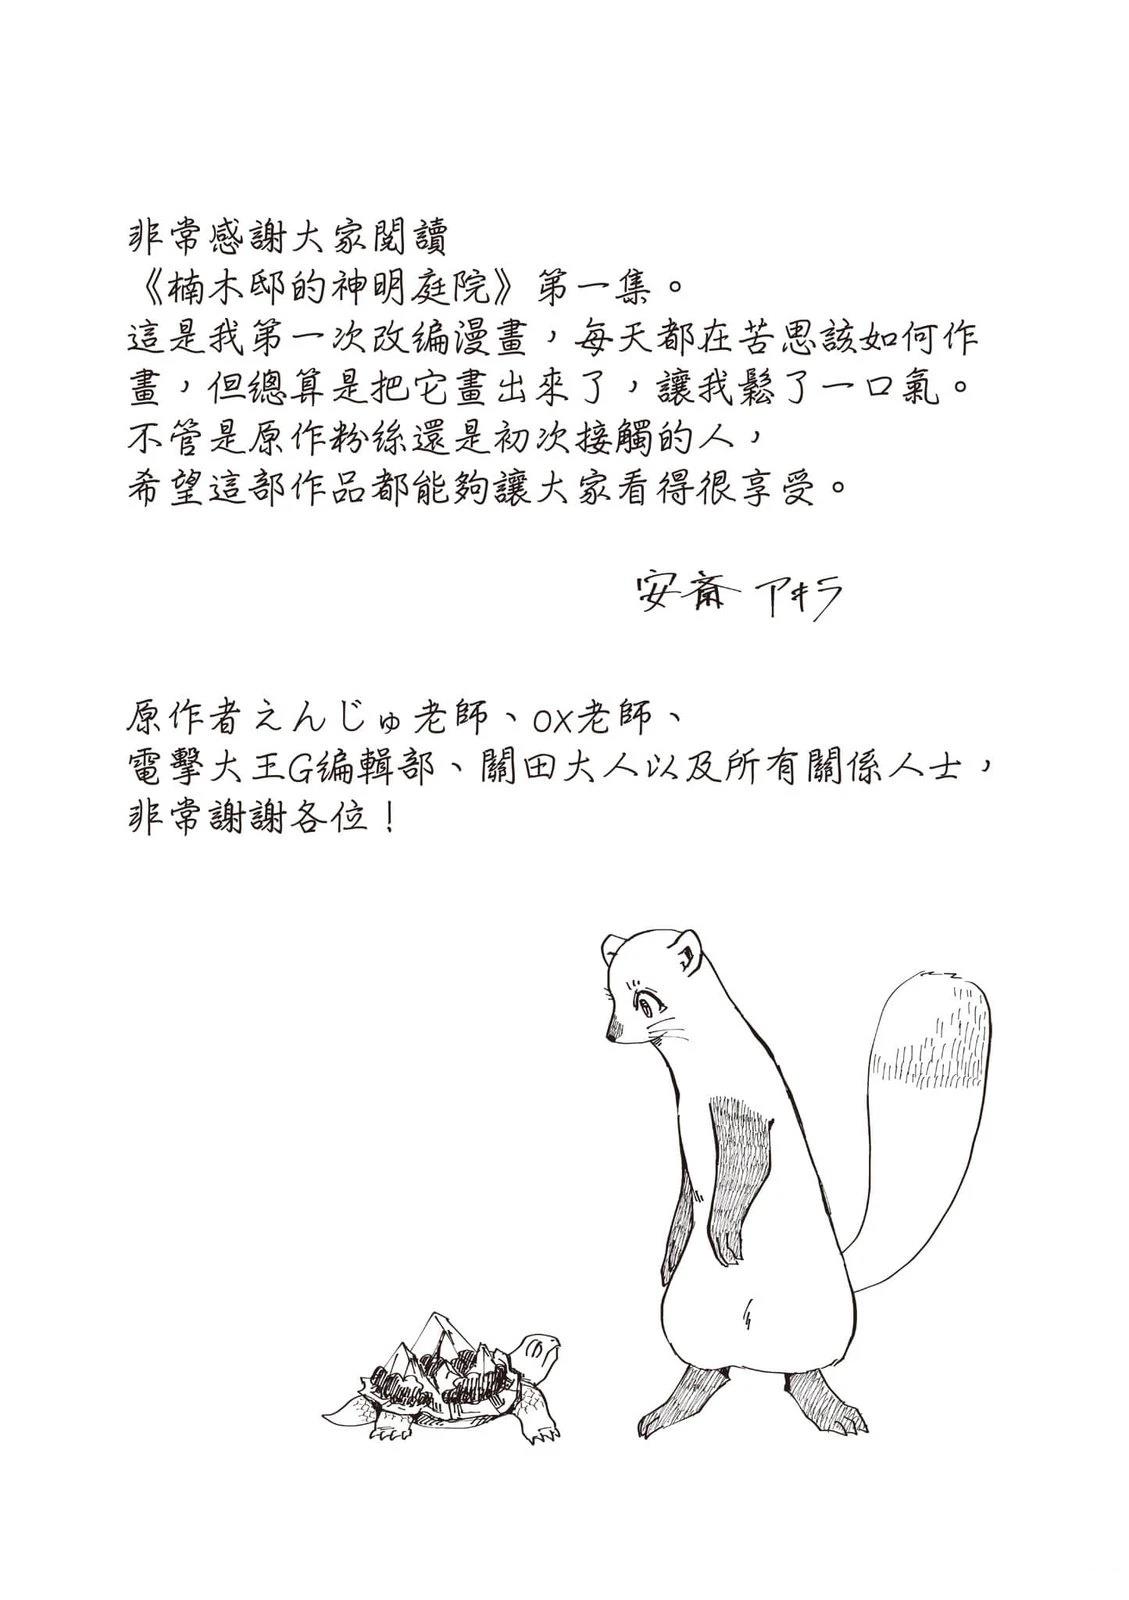 非常感謝大家閱讀
《楠木邸的神明庭院》第一集。
這是我第一次改編漫畫，每天都在苦思該如何作
畫，但總算是把它畫出來了，讓我鬆了一口氣。
不管是原作粉絲還是初次接觸的人，
希望這部作品都能夠讓大家看得很享受。
安斎 アキラ
原作者えんじゅ老師、ox老師、
電擊大王G編輯部、關田大人以及所有關係人士，
非常謝謝各位！